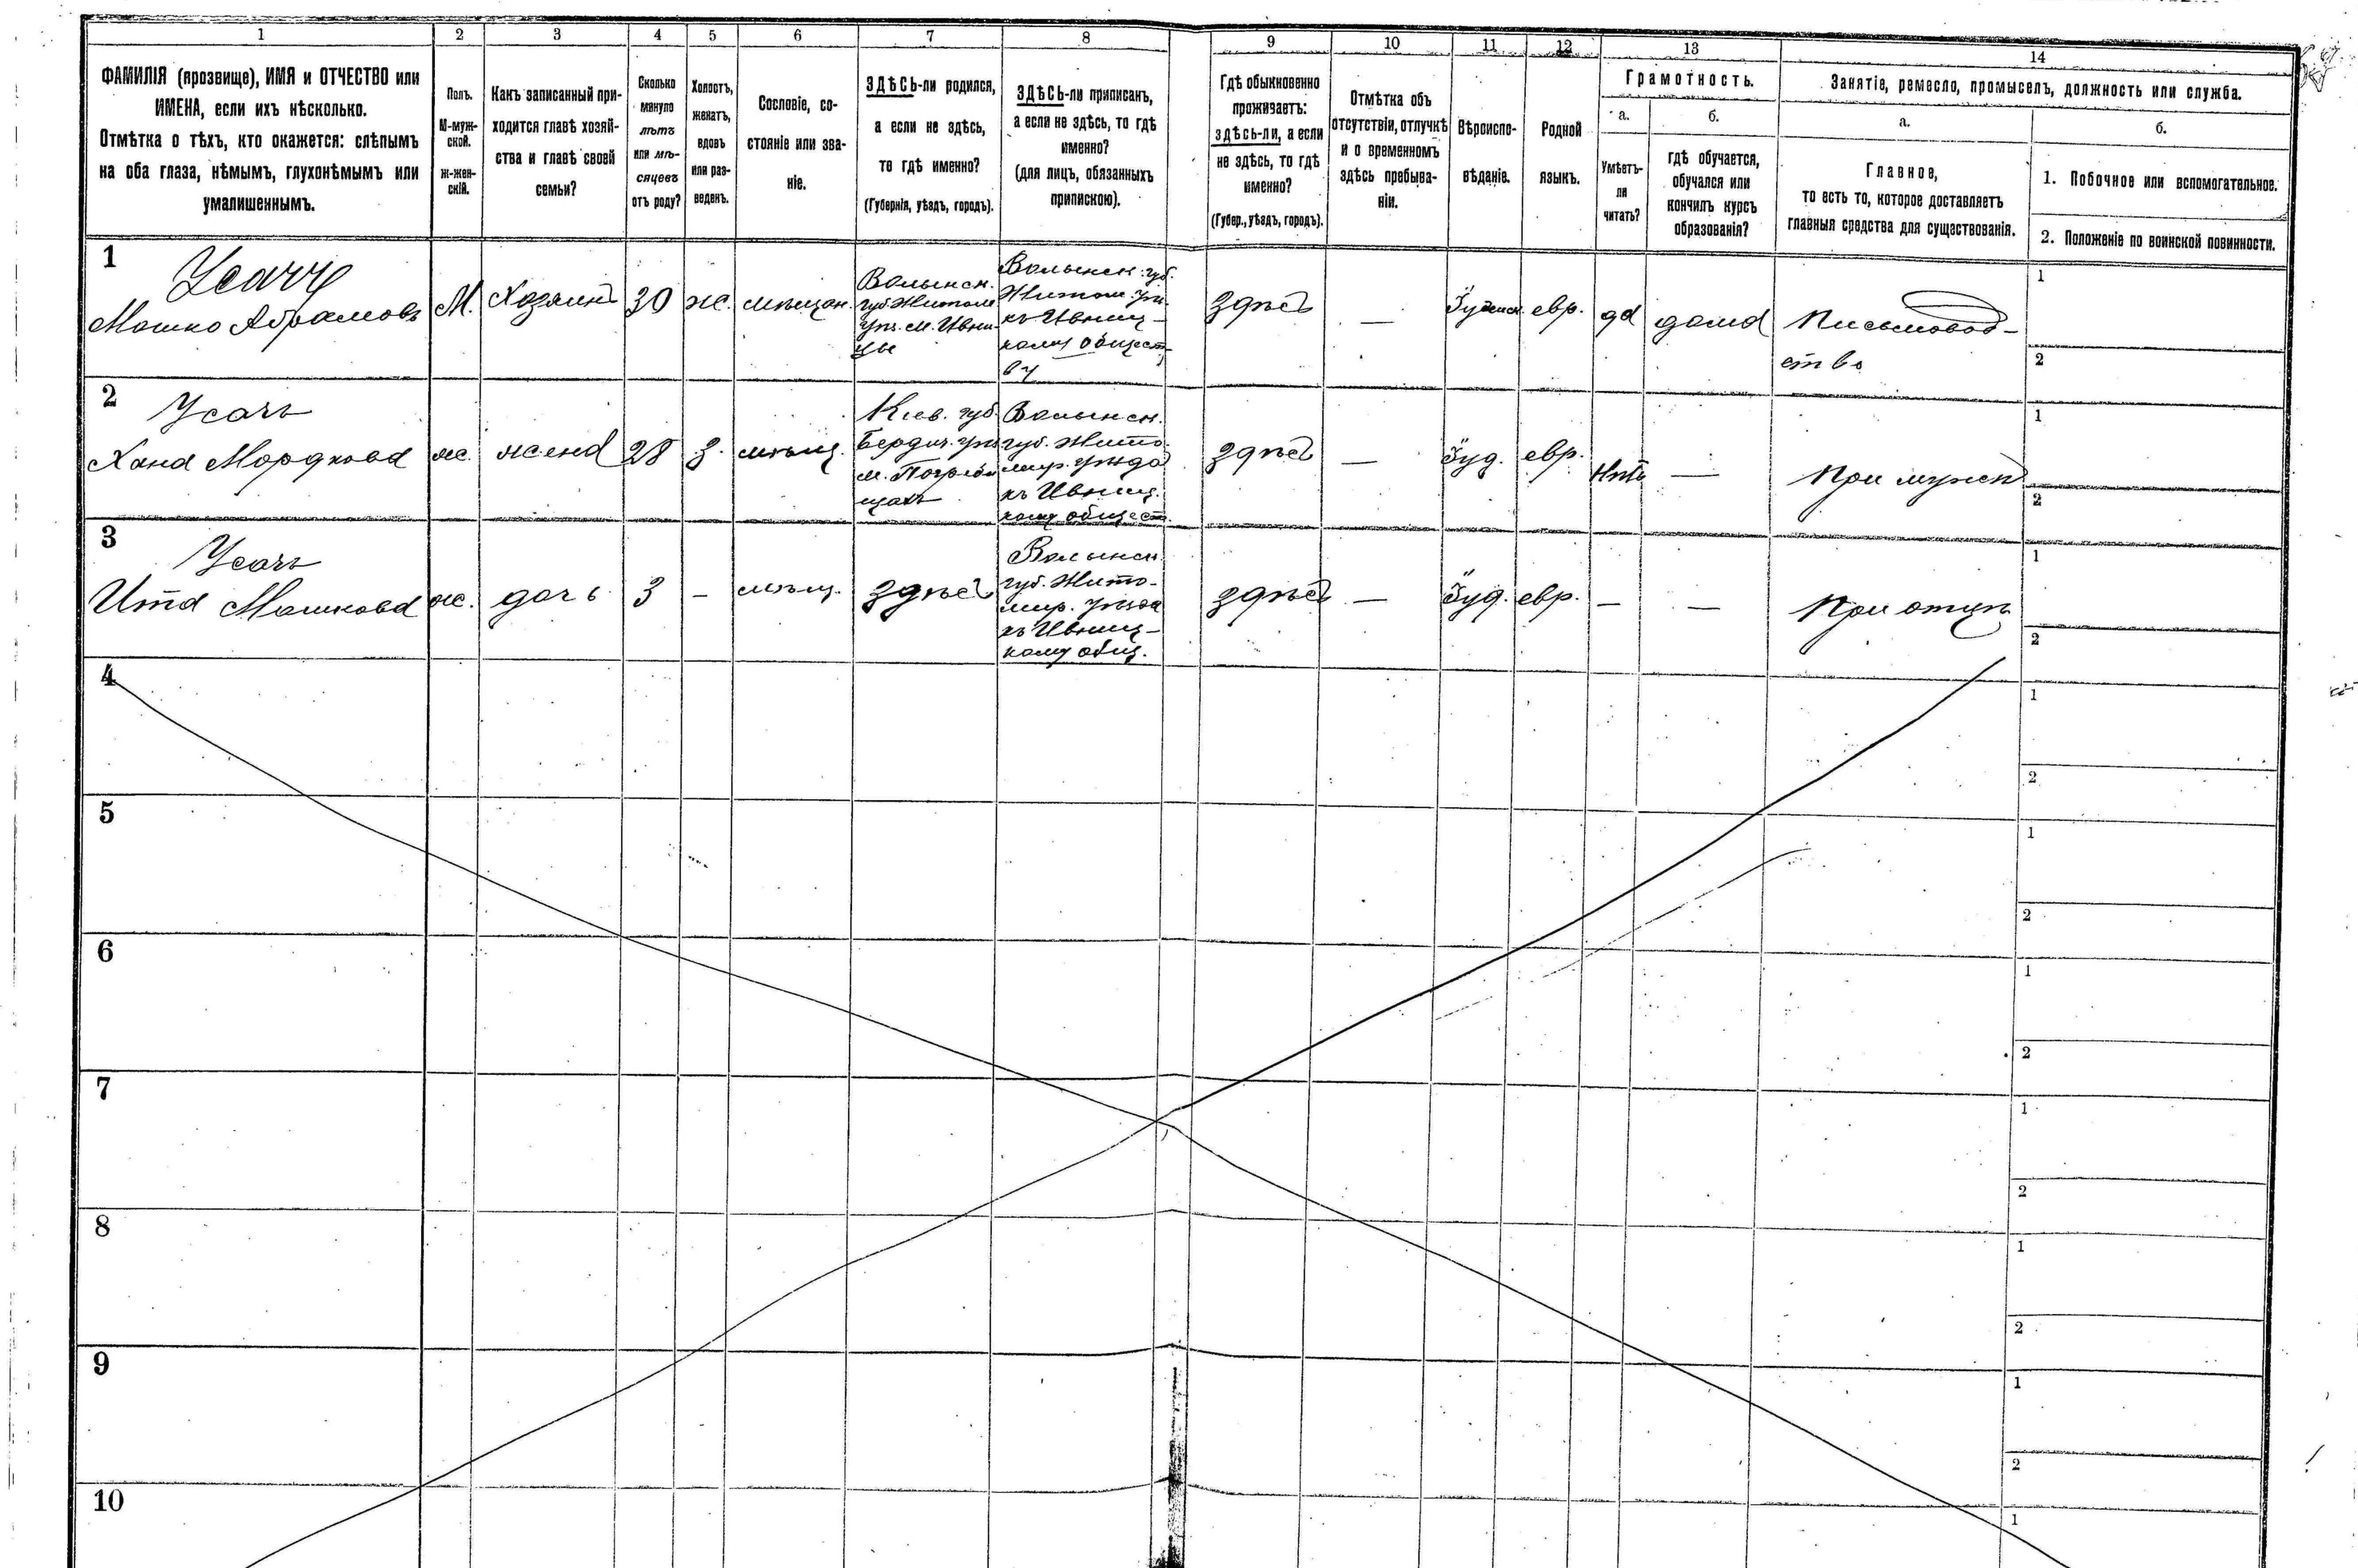 1 2 3 4 5 6 7 8 9 10 11 12 13 14
ФАМИЛІЯ (прозвище), ИМЯ и ОТЧЕСТВО или
ИМЕНА, если ихъ нѣсколько.
Отмѣтка о тѣхъ, кто окажется: слѣпымъ
на оба глаза, нѣмымъ, глухонѣмымъ или
умалишеннымъ.
Полъ.
М-муж-
ской.
ж-жен-
скій.
Какъ записанный при-
ходится главѣ хозяй-
ства и главѣ своей
семьи?
Сколько
минуло
лѣтъ
или мѣ-
сяцевъ
отъ роду?
Холостъ,
женатъ,
вдовъ
или раз-
веденъ.
Сословіе, со-
стояніе или зва-
ніе.
ЗДѢСЬ-ли родился,
а если не здѣсь,
то гдѣ именно?
(Губернія, уѣздъ, городъ).
ЗДѢСЬ-ли приписанъ,
а если не здѣсь, то гдѣ
именно?
(для лицъ, обязанныхъ
припискою).
Гдѣ обыкновенно
проживаетъ:
здѣсь-ли, а если
не здѣсь, то гдѣ
именно?
(Губер., уѣздъ, городъ).
Отмѣтка объ
отсутствіи, отлучкѣ
и о временномъ
здѣсь пребыва-
ніи.
Вѣроиспо-
вѣданіе.
Родной
языкъ.
Грамотность.
а.
Умѣетъ-
ли
читать?
б.
гдѣ обучается,
обучался или
кончилъ курсъ
образованія?
Занятіе, ремесло, промыселъ, должность или служба.
а.
Главное,
то есть то, которое доставляетъ
главныя средства для существованія.
б.
1. Побочное или вспомогательное.
2. Положеніе по воинской повинности.
1
Усачъ
Мошко Абрамовъ
М.
Хозяинъ
30
ж.
мѣщан.
Волынск.
губ. Житом.
уѣз. м. Ивни-
цы
Волынск. губ.
Житом. уѣз.
къ Ивниц-
кому общест-
ву
здѣсь
—
Іудейск.
евр.
да
дома
Письмовод-
ство
1
2
2
Усачъ
Хана Мордкова
ж.
жена
28
з.
мѣщ.
Кіев. губ.
Бердич. уѣз.
м. Погреби-
щахъ
Волынск.
губ. Жито-
мир. уѣзда
къ Ивниц-
кому общест.
здѣсь
—
Іуд.
евр.
Нѣтъ
—
При мужѣ
1
2
3
Усачъ
Ита Мошкова
ж.
дочь
3
—
мѣщ.
здѣсь
Волынск.
губ. Жито-
мир. уѣзда
къ Ивниц-
кому общ.
здѣсь
—
Іуд.
евр.
—
—
При отцѣ
1
2
4
1
2
5
1
2
6
1
2
7
1
2
8
1
2
9
1
2
10
1